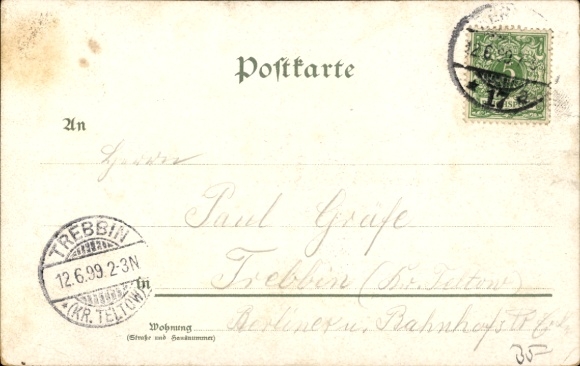 Postkarte
12.6.99
17
5
An
Herrn
Paul Gräfe
TREBBIN
12.6.99.2-3N
*(KR. TELTOW)
In Trebbin (Kr. Teltow)
Wohnung
(Straße und Hausnummer)
Berliner u. Bahnhofstr.